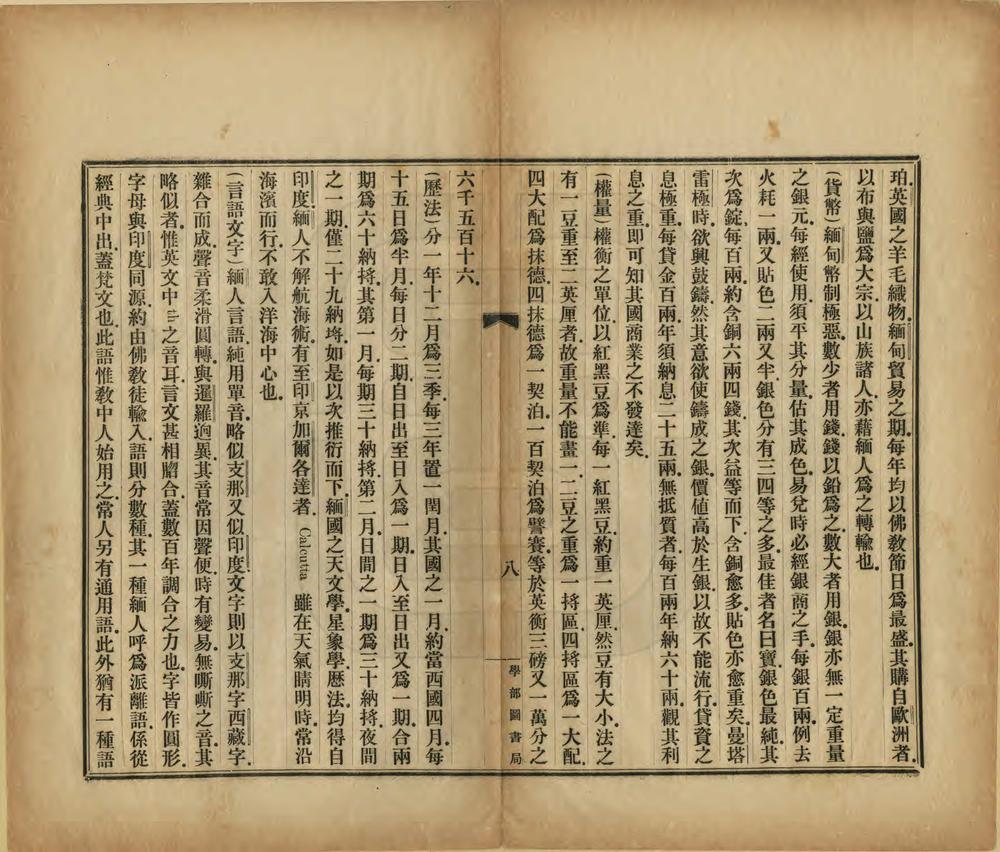 珀．英國之羊毛織物．緬甸貿易之期．每年均以佛教節日爲最盛．其購自歐洲者．
以布與鹽爲大宗．以山族諸人．亦藉緬人爲之轉輸也．
（貨幣）緬甸幣制極惡．數少者用錢．錢以鉛爲之．數大者用銀．銀亦無一定重量
之銀元．每經使用．須平其分量．估其成色．易兌時必經銀商之手．每銀百兩．例去
火耗一兩．又貼色二兩又半．銀色分有三四等之多．最佳者名曰寶．銀色最純．其
次爲錠．每百兩．約含銅六兩四錢．其次益等而下．含銅愈多．貼色亦愈重矣．曼塔
雷極時．欲興鼓鑄．然其意欲使鑄成之銀．價値高於生銀．以故不能流行．貸資之
息極重．每貸金百兩．年須納息二十五兩．無抵質者．每百兩年納六十兩．觀其利
息之重．卽可知其國商業之不發達矣．
（權量）權衡之單位．以紅黑豆爲準．每一紅黑豆．約重一英厘．然豆有大小．法之
有一豆重至二英厘者．故重量不能畫一．二豆之重爲一捋區．四捋區爲一大配．
四大配爲抹德．四抹德爲一契泊．一百契泊爲譬賽．等於英衡三磅又一萬分之
八
學部圖書局
六千五百十六．
（歷法）分一年十二月爲三季．每三年置一閏月．其國之一月．約當西國四月．每
十五日爲半月．每日分二期．自日出至日入爲一期．日入至日出又爲一期．合兩
期爲六十納捋．其第一月．每期三十納捋．第二月．日間之一期爲三十納捋．夜間
之一期．僅二十九納捋．如是以次推衍而下．緬國之天文學．星象學．曆法．均得自
印度．緬人不解航海術．有至印京加爾各達者．Calcutta 雖在天氣晴明時．常沿
海濱而行．不敢入洋海中心也．
（言語文字）緬人言語．純用單音．略似支那．又似印度．文字則以支那字西藏字．
雜合而成．聲音柔滑圓轉．與暹羅迥異．其音常因聲便．時有變易．無嘶嘶之音．其
略似者．惟英文中 之音耳．言文甚相脗合．蓋數百年調合之力也．字皆作圓形．
字母與印度同源．約由佛教徒輸入．語則分數種．其一種緬人呼爲派離語．係從
經典中出．蓋梵文也．此語惟教中人始用之．常人另有通用語．此外猶有一種語